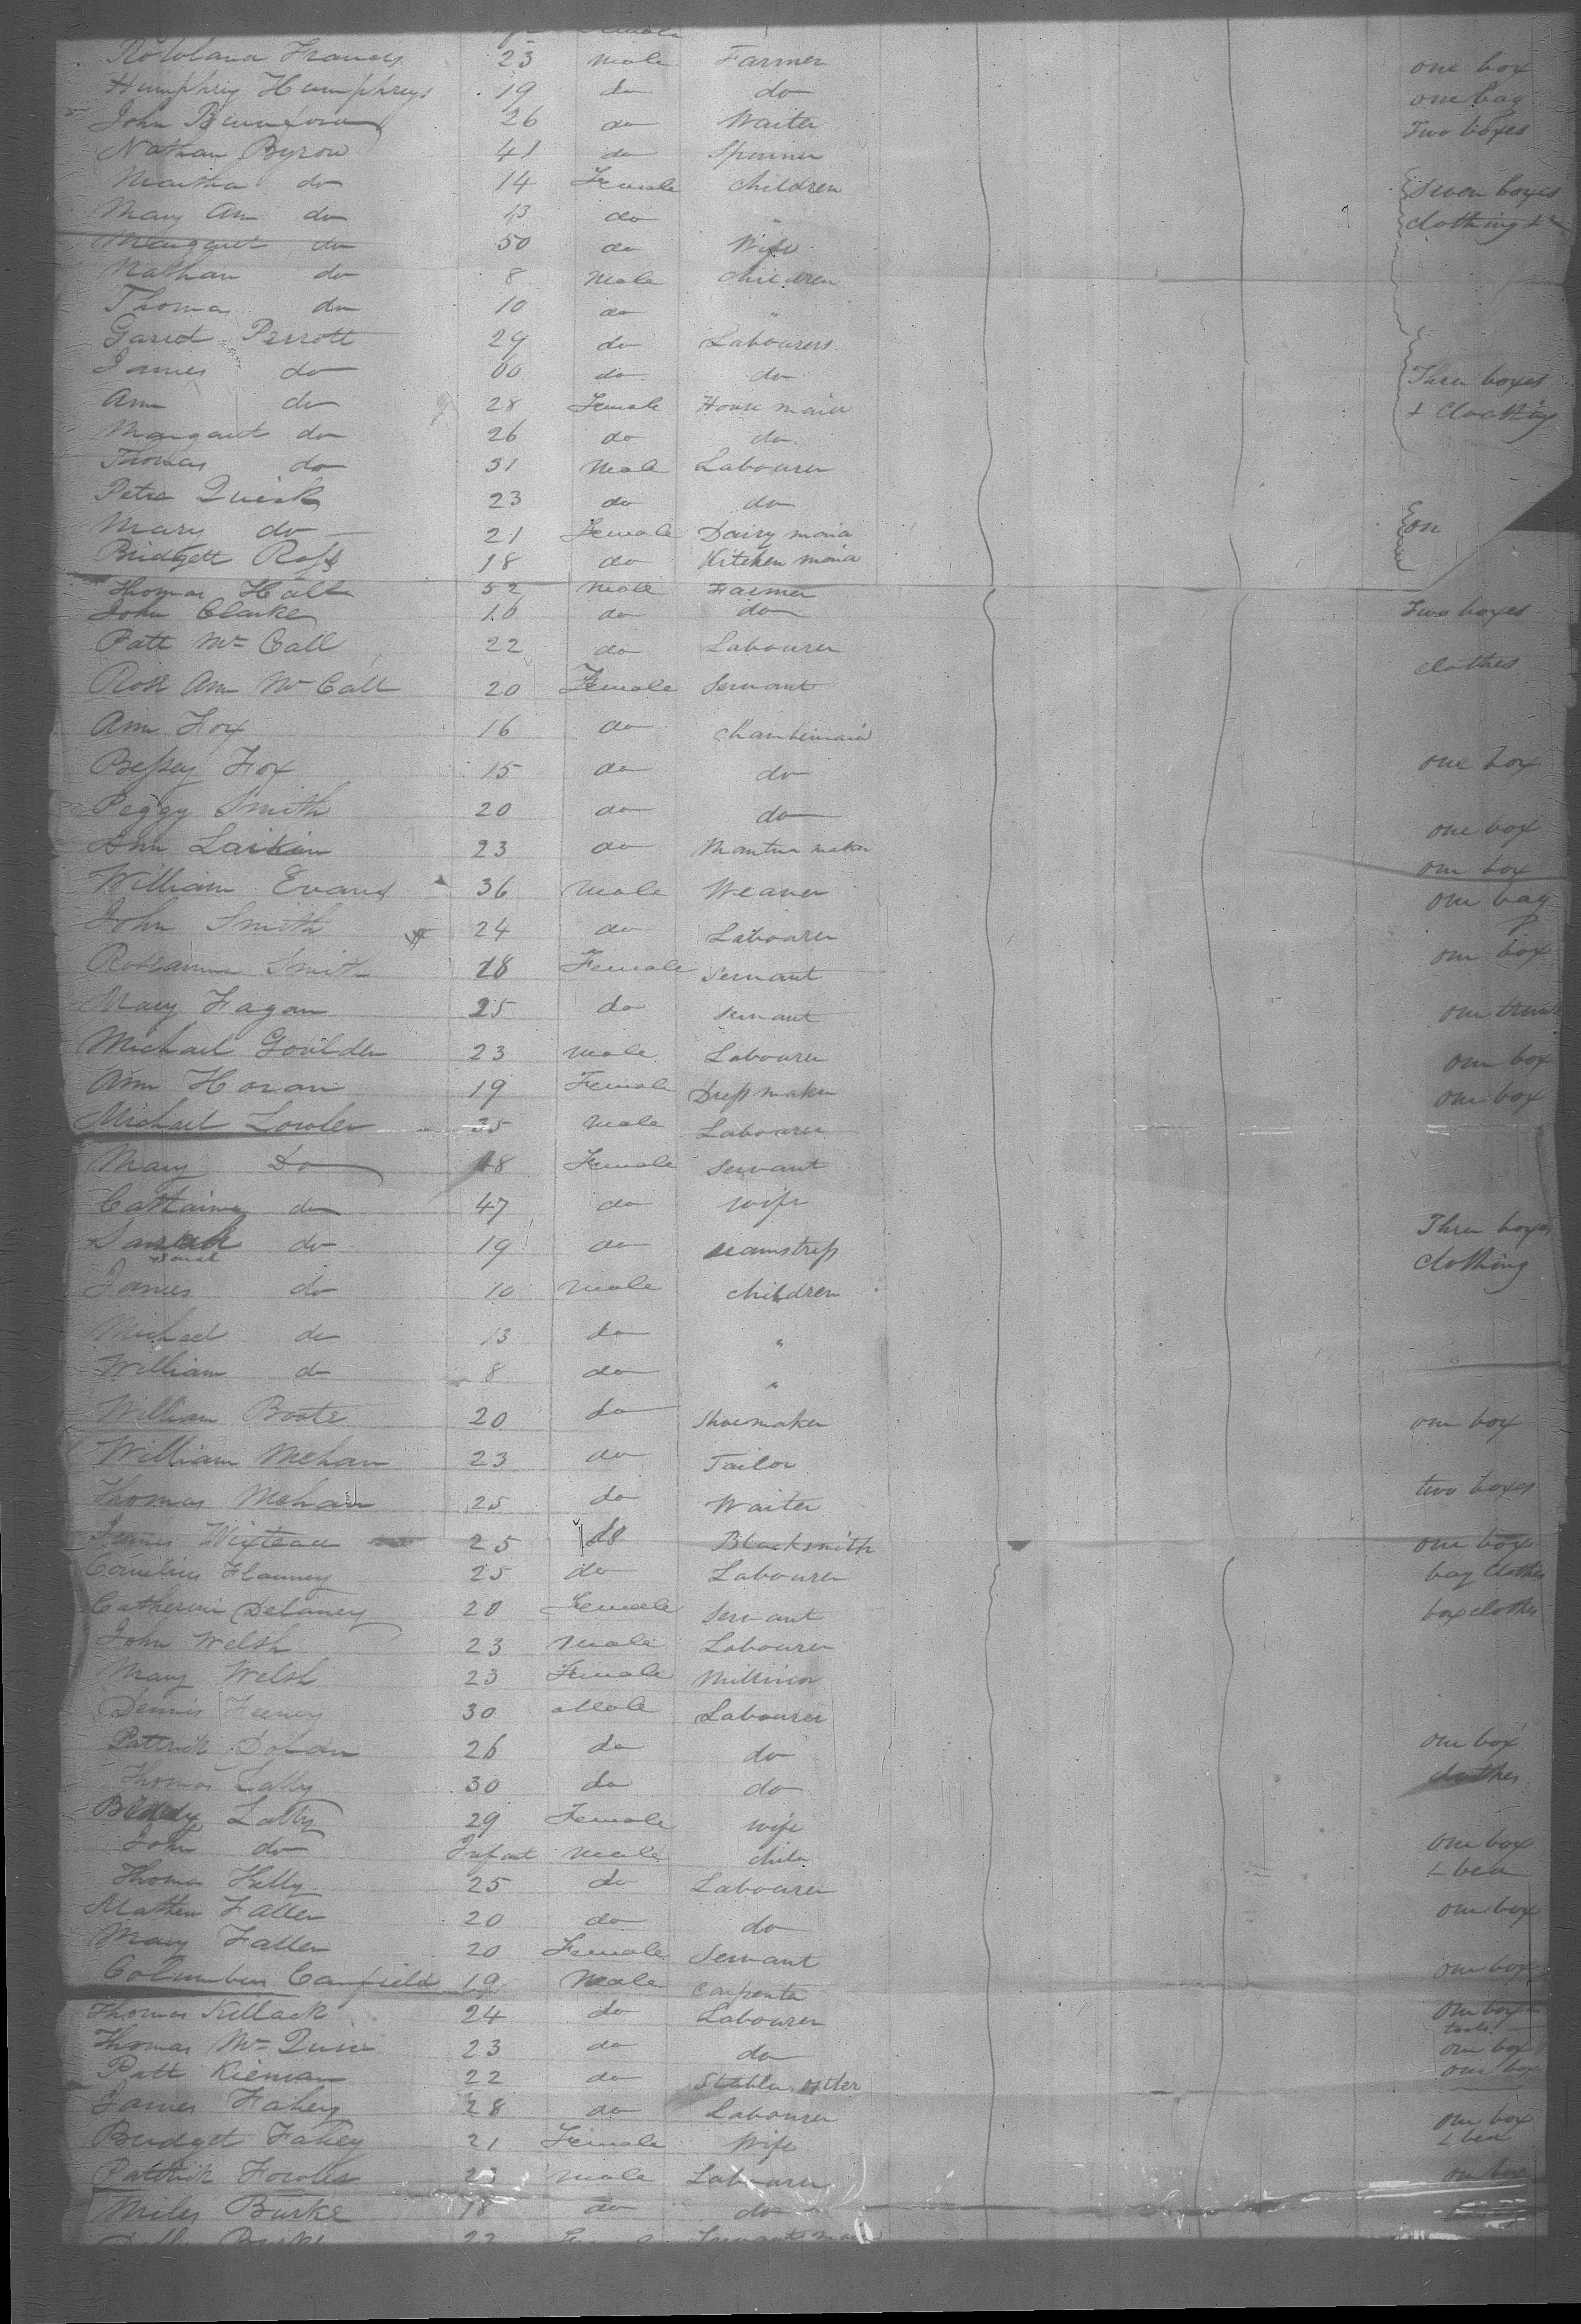 Rowland Francis 23 male Farmer one box
Humphrey Humphreys 19 do do one bag
John 26 do Waiter Two boxes
Nathan Byrow 41 do Spinner
Martha do 14 Female children Seven boxes
Mary Ann do 13 do " clothing &c
Margaret do 50 do Wife
Nathan do 8 Male children
Thomas do 10 do "
Garret Perrott 29 do Labourers
James do 60 do do Three boxes
Ann do 28 Female House maid & Clothing
Margaret do 26 do do
Thomas do 31 Male Labourer
Peter Quirk 23 do do
Mary do 21 Female Dairy maid on
Bridgett Ross 18 do Kitchen maid
Thomas Hall 52 Male Farmer
John Clarke 16 do do Two boxes
Patt McCall 22 do Labourer
Rose Ann McCall 20 Female Servant clothes
Ann Fox 16 do Chambermaid
Bessey Fox 15 do do one box
Peggy Smith 20 do do
Ann Larkin 23 do Mantua maker one box
William Evans 36 Male Weaver one box
John Smith 24 do Labourer one bag
Roseanna Smith 18 Female Servant one box
Mary Fagan 25 do servant one trunk
Michael Goulden 23 male Labourer one box
Ann Horan 19 Female Dressmaker one box
Michael Lowler 35 Male Labourer
Mary Do 18 Female Servant
Catharine do 47 do wife
Sarah do 19 do seamstress Three boxes
Sarah clothing
James do 10 Male children
Michael do 13 do "
William do 8 do "
William Boote 20 do Shoemaker one box
William Mehan 23 do Tailor
Thomas Mehan 25 do Waiter two boxes
James 25 do Blacksmith one box
Cornelius Flanney 25 do Labourer bag Clothes
Catherine Delaney 20 Female Servant box clothes
John Welsh 23 Male Labourer
Mary Welsh 23 Female Millinor
Dennis Feeney 30 Male Labourer
Pattrick Dolan 26 do do one box
Thomas Lally 30 do do clothes
Biddy Lally 29 Female wife
John do Infant Male child one box
Thomas Kelly 25 do Labourer & bed
Mathew Fallen 20 do do one box
Mary Fallen 20 Female Servant
Columbus Canfield 19 Male Carpenter one box
Thomas Killack 24 do Labourer one box &
tools
Thomas McQuin 23 do do one box
Patt Kiernan 22 do Stabler ostler one box
James Fahey 28 do Labourer one box
Bridget Fahey 21 Female Wife & bed
Pattrick Fowles 23 male Labourer one box
Miles Burke 18 do do
Burke 22 Servant